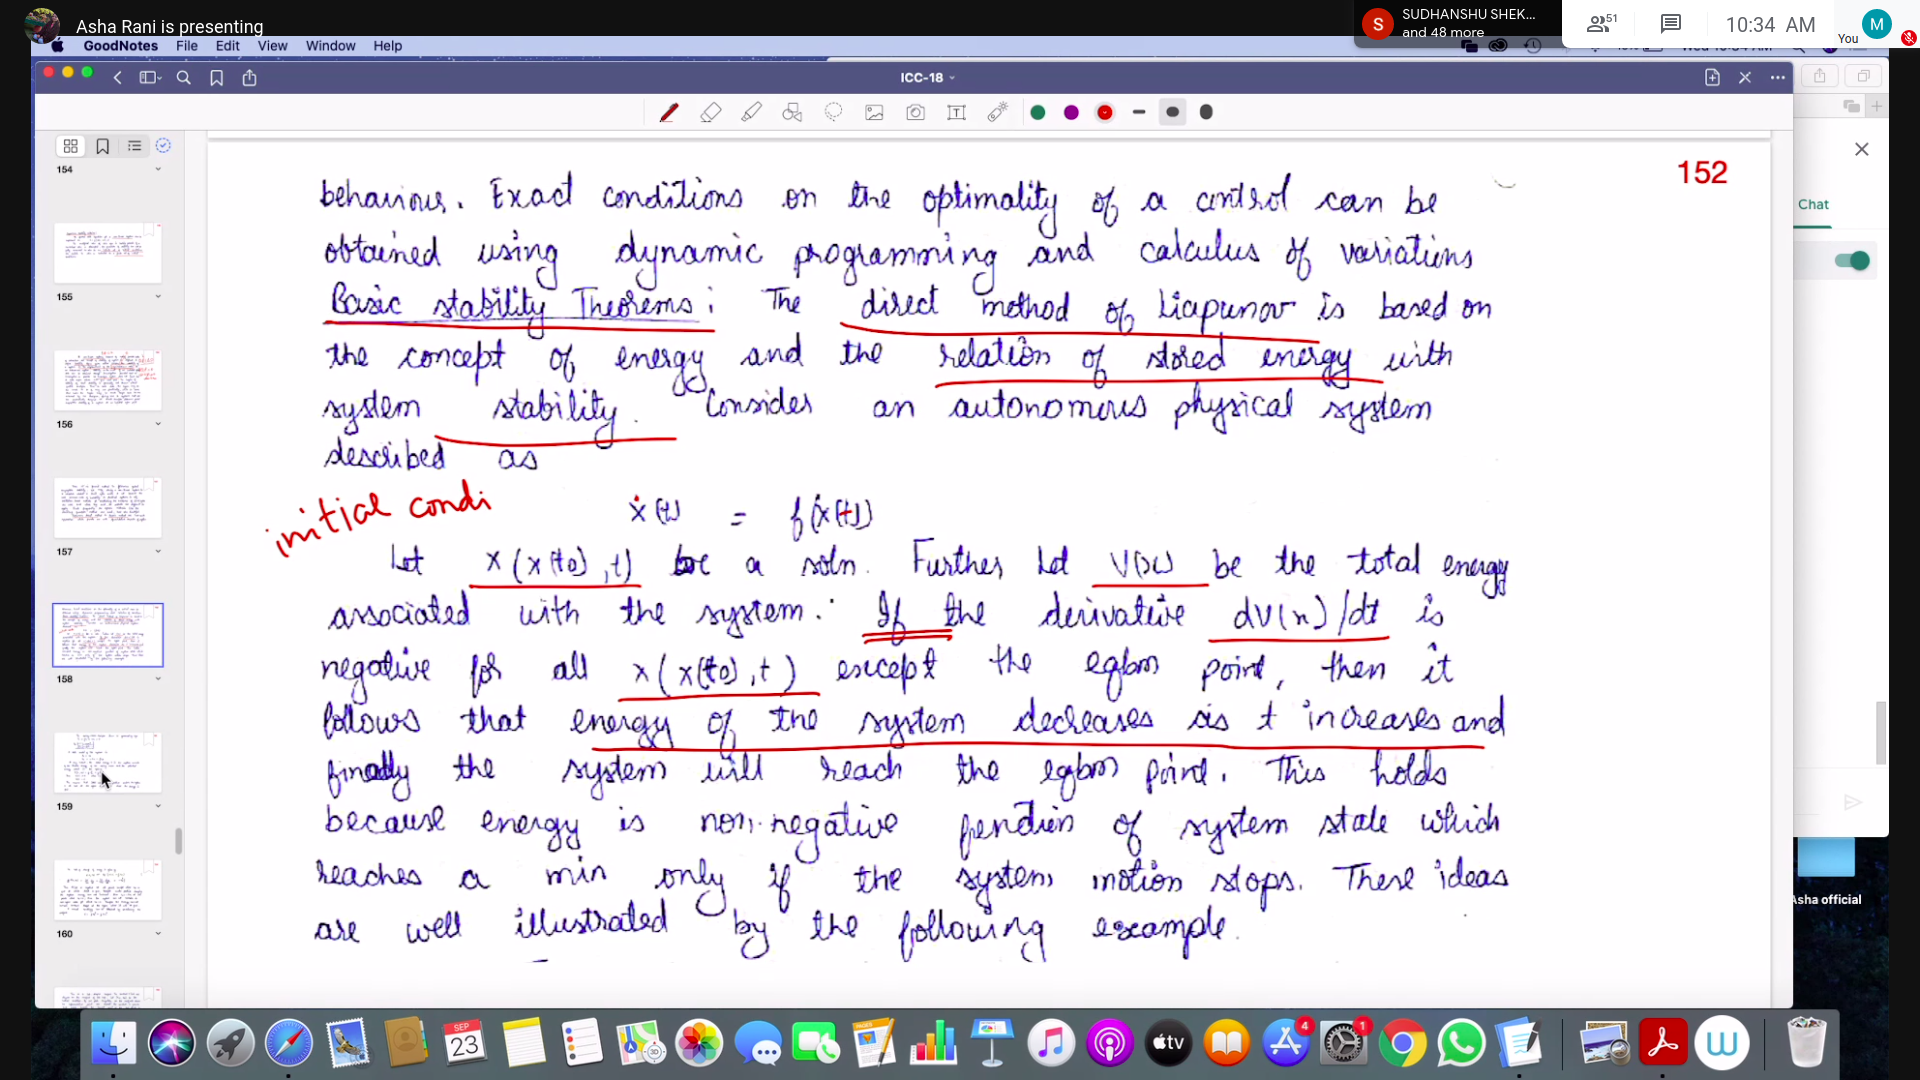 Asha Rani is presenting
SUDHANSHU SHEK...
and 48 more
51
10:34 AM
You
M
S
GoodNotes File Edit View Window Help
ICC-18
152
154
155
156
157
158
159
160
Chat
behaviour. Exact conditions on the optimality of a control can be
obtained using dynamic programming and calculus of variations
Basic stability Theorems: The direct method of Liapunov is based on
the concept of energy and the relation of stored energy with
system stability. Consider an autonomous physical system
described as
initial condi
ẋ(t) = f(x(t))
Let x(x(t0),t) be a soln. Further let V(x) be the total energy
associated with the system. If the derivative dV(x)/dt is
negative for all x(x(t0),t) except the eqbm point, then it
follows that energy of the system decreases as t increases and
finally the system will reach the eqbm point. This holds
because energy is non-negative function of system state which
reaches a min only if the system motion stops. These ideas
are well illustrated by the following example.
Asha official
SEP
23
PAGES
tv
4
1